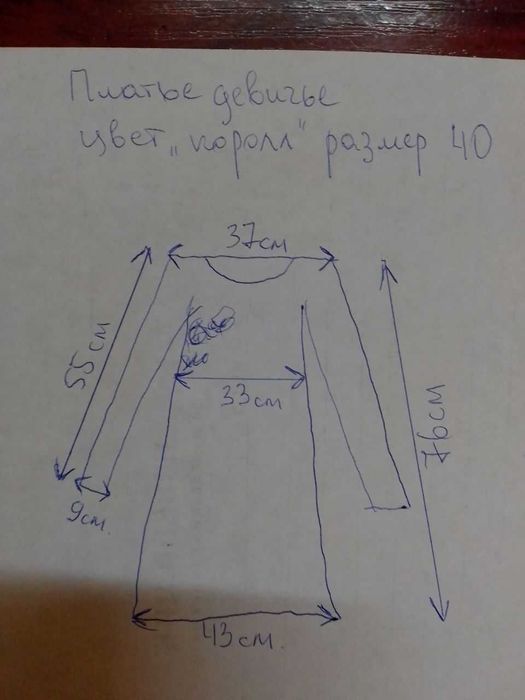 Платье девичье
цвет "королл" размер 40
37см
55см
33см
76см
9см.
43см.